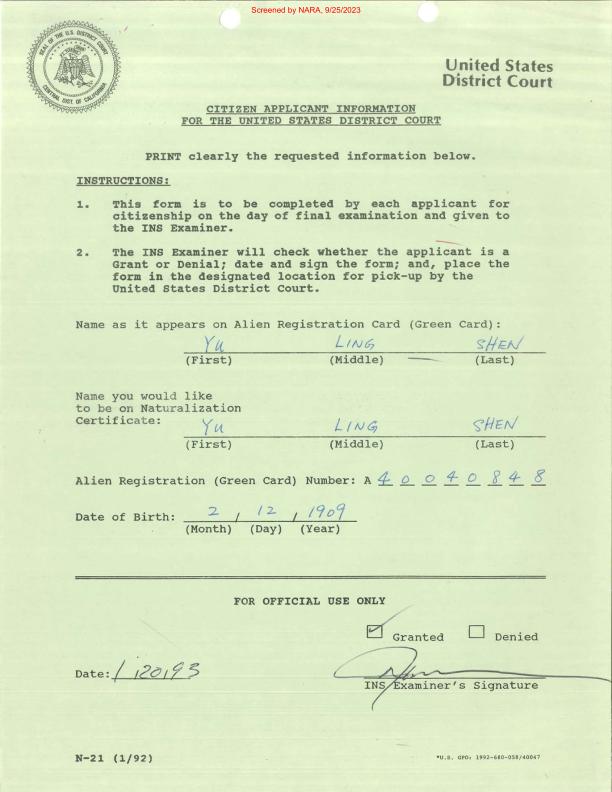 Screened by NARA, 9/25/2023
SEAL OF THE U.S. DISTRICT COURT
CENTRAL DIST. OF CALIFORNIA
United States
District Court
CITIZEN APPLICANT INFORMATION
FOR THE UNITED STATES DISTRICT COURT
PRINT clearly the requested information below.
INSTRUCTIONS:
1. This form is to be completed by each applicant for
citizenship on the day of final examination and given to
the INS Examiner.
2. The INS Examiner will check whether the applicant is a
Grant or Denial; date and sign the form; and, place the
form in the designated location for pick-up by the
United States District Court.
Name as it appears on Alien Registration Card (Green Card):
YU LING SHEN
(First) (Middle) (Last)
Name you would like
to be on Naturalization
Certificate: YU LING SHEN
(First) (Middle) (Last)
Alien Registration (Green Card) Number: A 4 0 0 4 0 8 4 8
Date of Birth: 2 / 12 / 1909
(Month) (Day) (Year)
FOR OFFICIAL USE ONLY
Granted Denied
Date: 1/20/93
INS Examiner's Signature
N-21 (1/92)
*U.S. GPO: 1992-680-058/40047